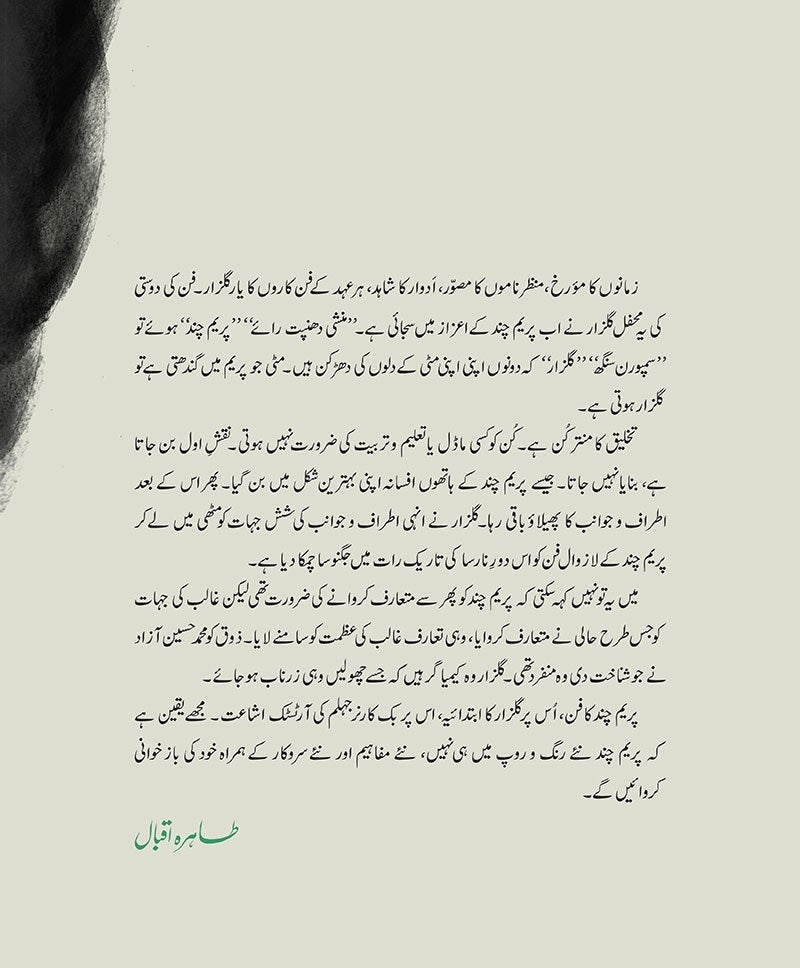 زمانوں کا مؤرخ، منظر ناموں کا مصوّر، اَدوار کا شاہد، ہر عہد کے فن کاروں کا یار گلزار۔ فن کی دوستی
کی یہ محفل گلزار نے اب پریم چند کے اعزاز میں سجائی ہے۔ ”منشی دھنپت رائے“ ”پریم چند“ ہوئے تو
”سمپورن سنگھ“ ”گلزار“ کہ دونوں اپنی اپنی مٹی کے دلوں کی دھڑکن ہیں۔ مٹی جو پریم میں گندھتی ہے تو
گلزار ہوتی ہے۔
تخلیق کا منتر کُن ہے۔ کُن کو کسی ماڈل یا تعلیم و تربیت کی ضرورت نہیں ہوتی۔ نقشِ اول بن جاتا
ہے، بنایا نہیں جاتا۔ جیسے پریم چند کے ہاتھوں افسانہ اپنی بہترین شکل میں بن گیا۔ پھر اس کے بعد
اطراف و جوانب کا پھیلاؤ باقی رہا۔ گلزار نے انہی اطراف و جوانب کی شش جہات کو مٹھی میں لے کر
پریم چند کے لازوال فن کو اس دورِ نارسا کی تاریک رات میں جگنو سا چمکا دیا ہے۔
میں یہ تو نہیں کہہ سکتی کہ پریم چند کو پھر سے متعارف کروانے کی ضرورت تھی لیکن غالب کی جہات
کو جس طرح حالی نے متعارف کروایا، وہی تعارف غالب کی عظمت کو سامنے لایا۔ ذوق کو محمد حسین آزاد
نے جو شناخت دی وہ منفرد تھی۔ گلزار وہ کیمیا گر ہیں کہ جسے چھو لیں وہی زرناب ہو جائے۔
پریم چند کا فن، اُس پر گلزار کا ابتدائیہ، اس پر بک کارنر جہلم کی آرٹسٹک اشاعت۔ مجھے یقین ہے
کہ پریم چند نئے رنگ و روپ میں ہی نہیں، نئے مفاہیم اور نئے سروکار کے ہمراہ خود کی باز خوانی
کروائیں گے۔
طاہرہ اقبال